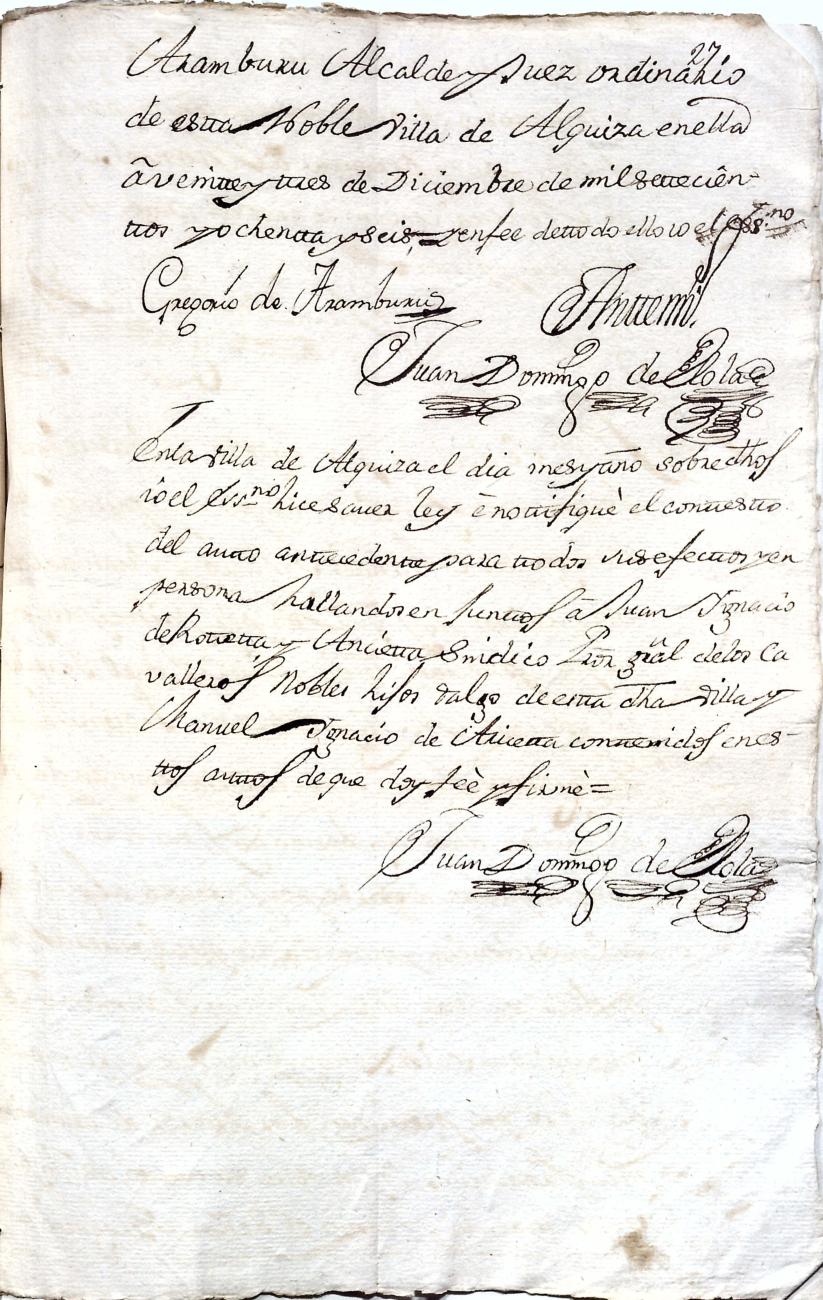 27
Aramburu Alcalde y Juez ordinario
de estta Noble Villa de Alquiza en ella
â veintte y ttres de Diciembre de mil settecien-
ttos y ochentta y seis, = y en fee de ttodo ello io el Ess.no
Gregorio de Aramburu
Anttemi.
Juan Domingo de
En la Villa de Alquiza el dia mes y año sobre dhos
io el Ess.no hice sauer ley è nottifiquè el conttestto
del autto anttecedentte para ttodos sus efecttos y en
persona hallandosen junttos â Juan Ygnacio
de Rotteta y Ancietta Sindico Pror gral de los Ca
valleros Nobles hijos dalgo de estta dha Villa y
Manuel Ygnacio de Aricetta conttenidos en es-
ttos auttos de que doy feè y firmè =
Juan Domingo de